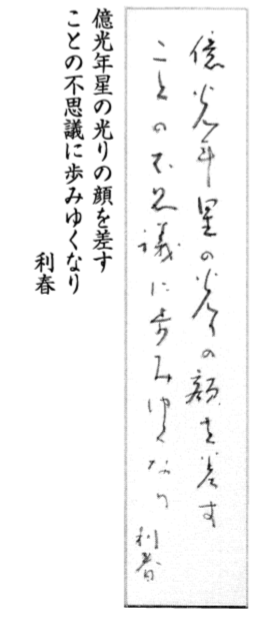 億光年星の光りの顔を差す
ことの不思議に歩みゆくなり
利春
億光年星の光りの顔を差す
ことの不思議に歩みゆくなり
利春